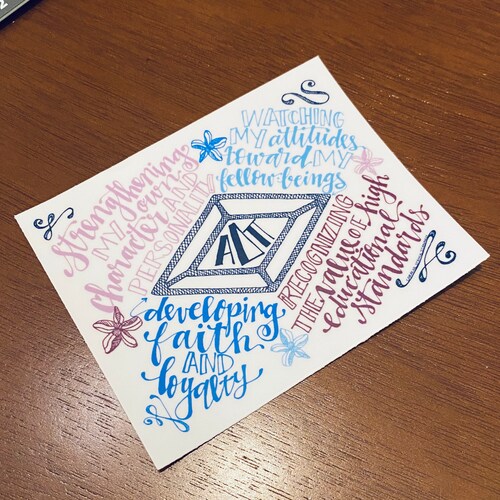 Strengthening
MY own
Character AND
PERSONALITY
WATCHING
MY attitudes
toward MY
fellow-beings
ΔΔΓ
RECOGNIZING
THE value OF high
educational
standards
developing
faith
AND
loyalty